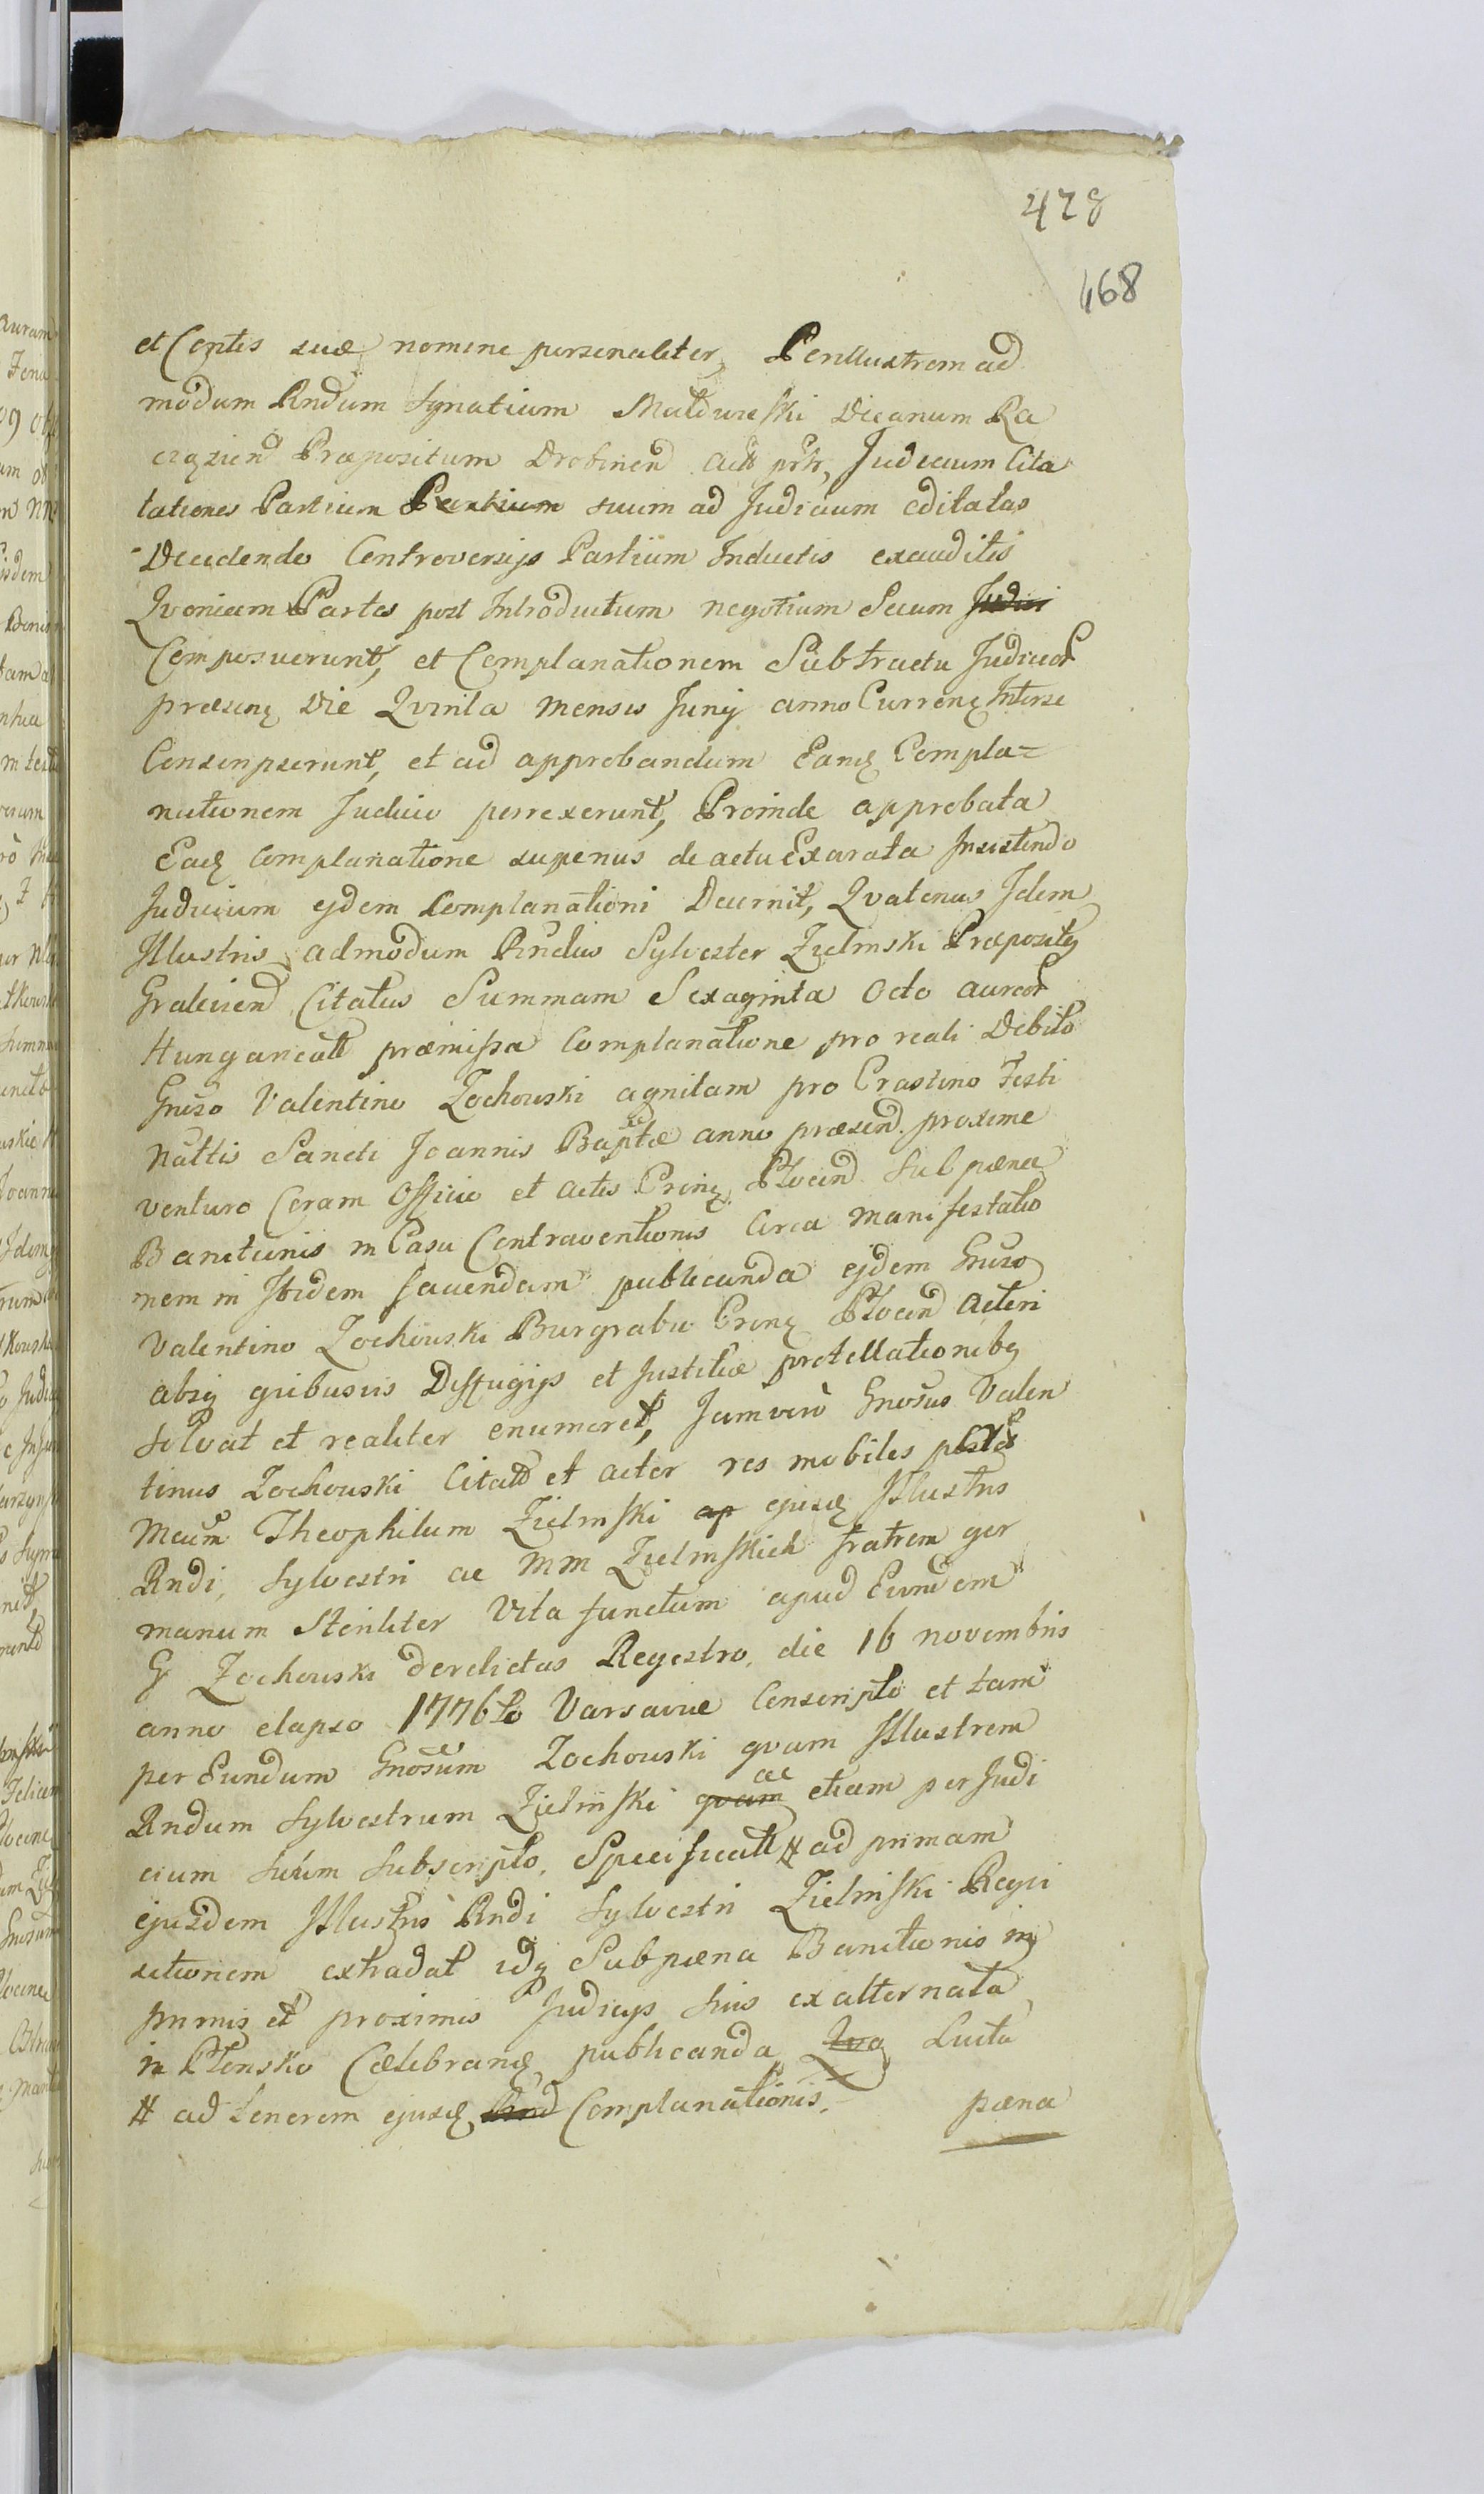 428
168
et Conptis suæ nomine personaliter, Perillustrem ad
modum Rndum Ignatium Małdurefki Decanum Ra
ciąziend Præpositum Drobinend Actt pr̃tr, Judicium Cita
tationes Partium Partium suum ad Judicium editatas
Decidendo Controversijs Partium Inductis exauditis
Qvoniam Partes post Introductum negotium Secum Judici
Composuerunt, et Complanationem Subtractu Judicior
præsenţ Die Qvinta mensis Junij anno Currenţ Interse
Conscripserunt, et ad approbandum Eandţ Compla=
nationem Judicio perrexerunt, Proinde approbata
Eadţ Complanatione superius de actu Exarata Insistendo
Judicium ejdem Complanationi Decernit, Qvatenus Idem
Illustris admodum Rndus Sylvester Zielinski Præposity
Graleviend Citatus Summam Sexaginta Octo aureor
Hungaricall præmissa Complanatione pro reali Debito
Gnoso Valentino Zochowski agnitam pro Crastino Festi
Nattis Sancti Joannis Baptæ anno præsend. proxime
venturo Coram Officio et Actis Crenţ Płocend Sub pæna
Banitionis in Casu Contraventionis Circa manifestatio
nem in Ibidem favendam publicanda ejdem Gnoso
Valentino Zochowski Burgrabio Crenţ Płocend Actori
absq qvibusvis Diffugijs et Justitiæ protellationiby
Solvat et realiter enumeret, Jamverò Gnosus Valen
tinus Zochowski Citatd et actor res mobiles post
Mcum Theophilum Zielinfki ap ejusdţ Illustris
Rndi, Sylvestri ac MM Zielinfkich fratrem ger
manum Steriliter Vita functum apud Eundem
G Zochowski derelictas Regestro, die 16 novembris
anno elapso 1776to Varsaviæ Conscripto et tam
per Eundum Gnosum Zochowski qvam Illustrem
Rndum Sylvestrum Zielinfki qvam ac etiam per Judi
cium Suum Subscripto, Specificatt # ad primam
ejusdem Illustris Rndi Sylvestri Zielinfki Reqvi
sitionem extradat idq Subpæna Banitionis in
primis et proximis Judicijs Suis ex alternata
in Płonsko Cælebrandţ publicanda Qva Luita
# ad tenorem ejusdţ Rnd Complanationis, pæna